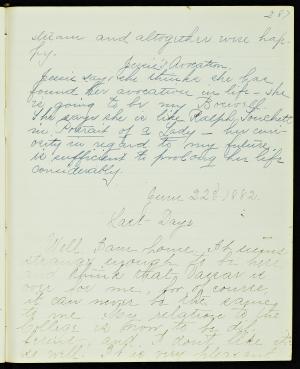 287
dream and altogether wise hap-
py.
Jessie's Avocation.
Jessie says she thinks she has
found her avocation in life - She
is going to be my Boswell.
She says she is like Ralph Touchett
in Portrait of a Lady - her curi-
osity in regard to my future
is sufficient to prolong her life
considerably.
June 22d, 1882.
Last Days
Well I am home. It seems
strange enough to be here
and think that Vassar is
over for me, for of course
it can never be the same
to me. My relation to the
College is now to be dif-
ferent, and I don't like it
as well. It is very pleasant